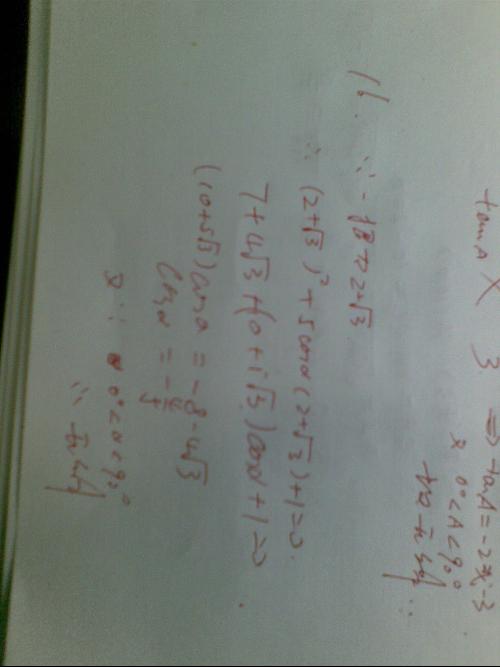 tanA × 3 ⇒ tanA = -2或-3
又 0°<A<90°
∴ 所以无
16. ∵ 一根为2+√3
∴ (2+√3)²+5cosα(2+√3)+1=0
7+4√3+(10+5√3)cosα+1=0
(10+5√3)cosα = -8-4√3
cosα = -4/5
又∵ 0°<α<90°
∴